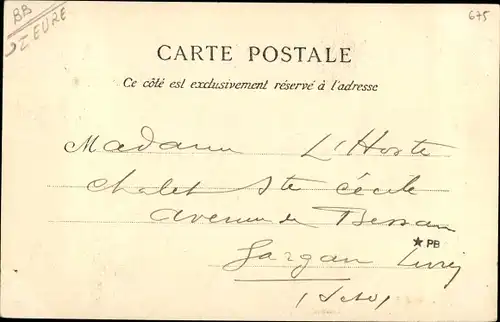 BB
EURE
675
CARTE POSTALE
Ce côté est exclusivement réservé à l'adresse
Madame L'Hoste
Chalet Ste Cécile
Avenue de
★ PB
Gargan Livry